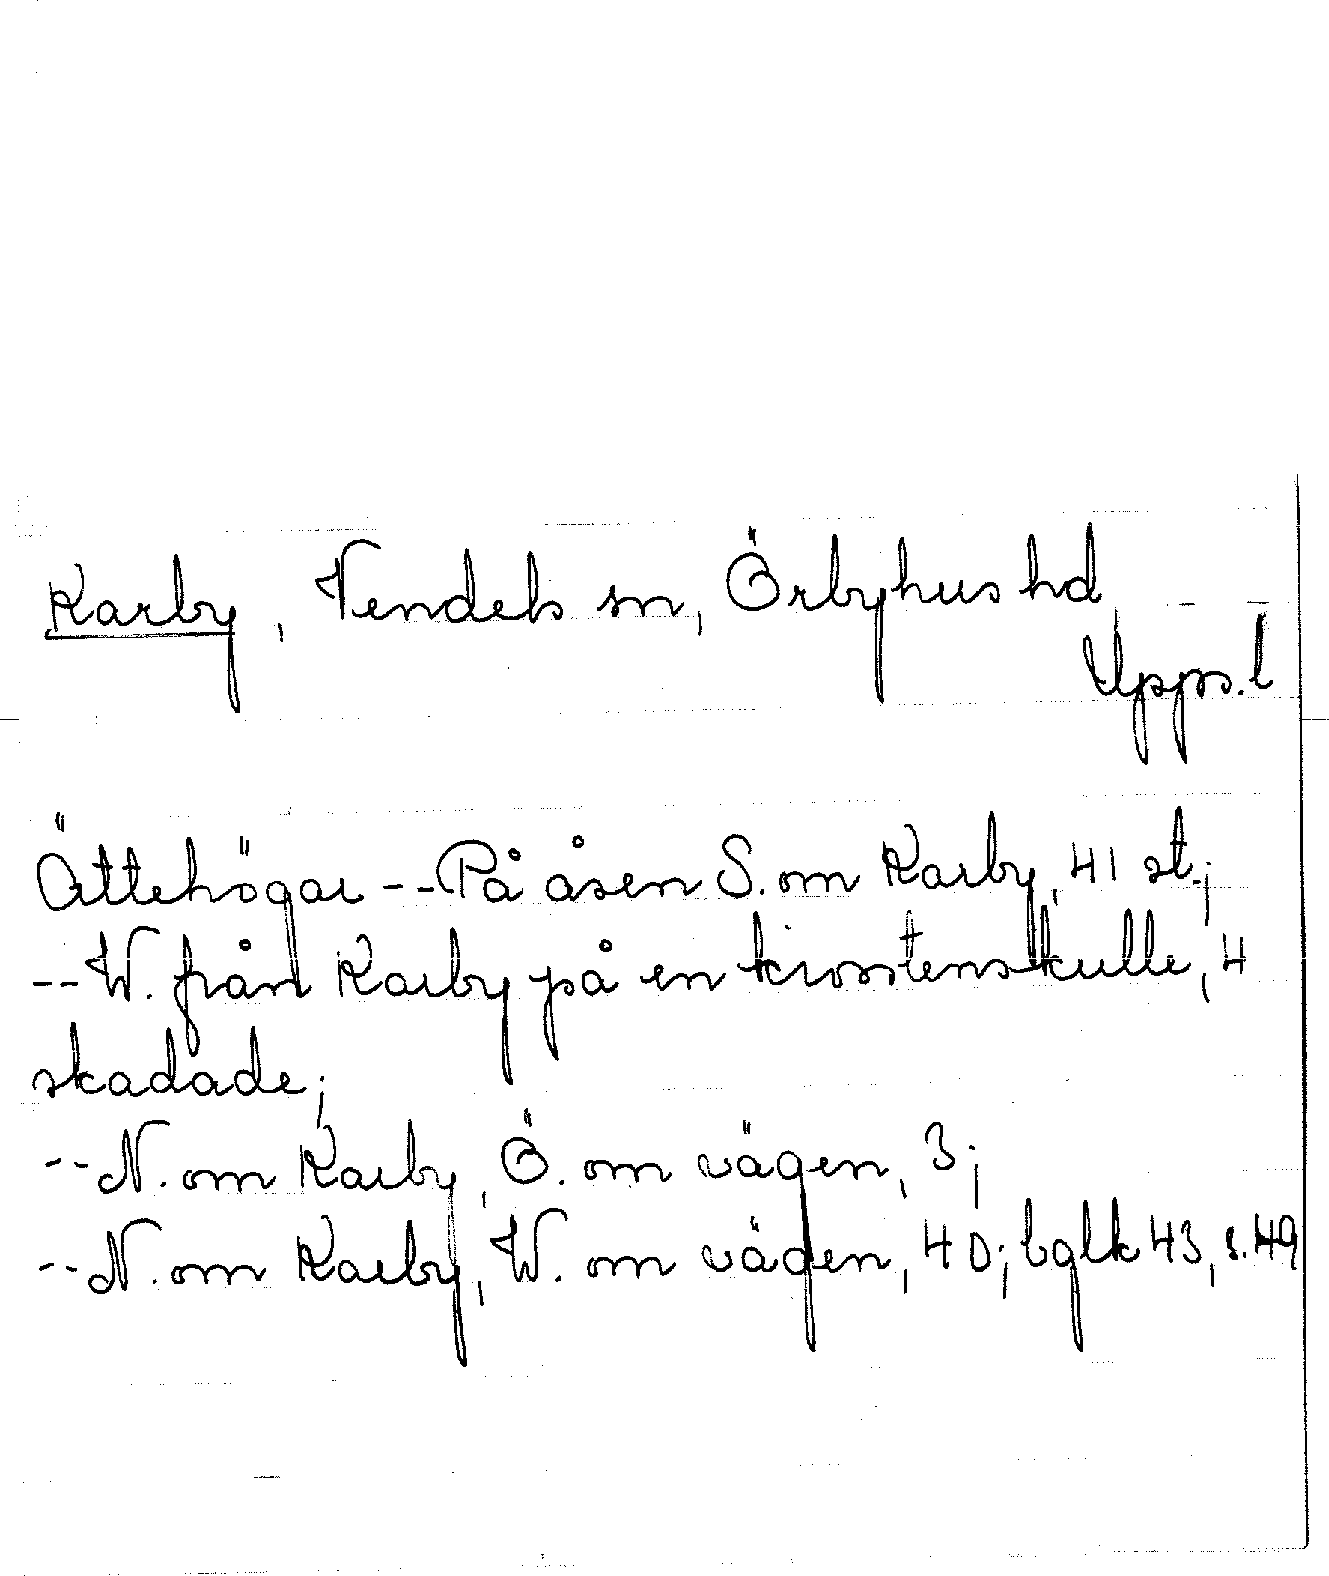 Karby, Vendels sn, Örbyhus hd
Upps. l
Ättehögar -- På åsen S. om Karby, 41 st.;
-- W. från Karby på en krosstenskulle, 4
skadade;
-- N. om Karby, Ö. om vägen, 3;
-- N. om Karby, W. om vägen, 40; bglk 43, s. 49